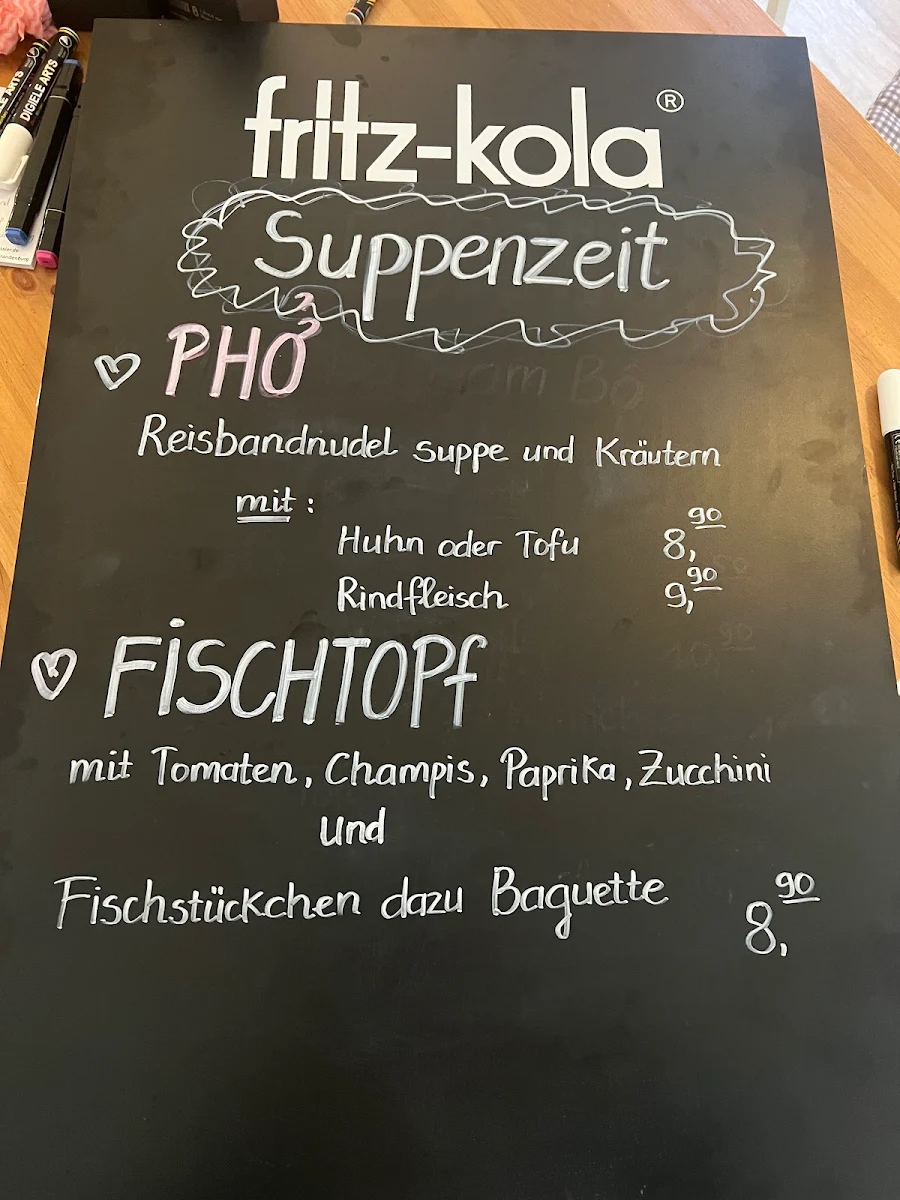 fritz-kola®
Suppenzeit
PHỞ
Reisbandnudel suppe und Kräutern
mit:
Huhn oder Tofu 8,90
Rindfleisch 9,90
FiSCHTOPf
mit Tomaten, Champis, Paprika, Zucchini
und
Fischstückchen dazu Baguette 8,90
DIGIELE ARTS
ARTS